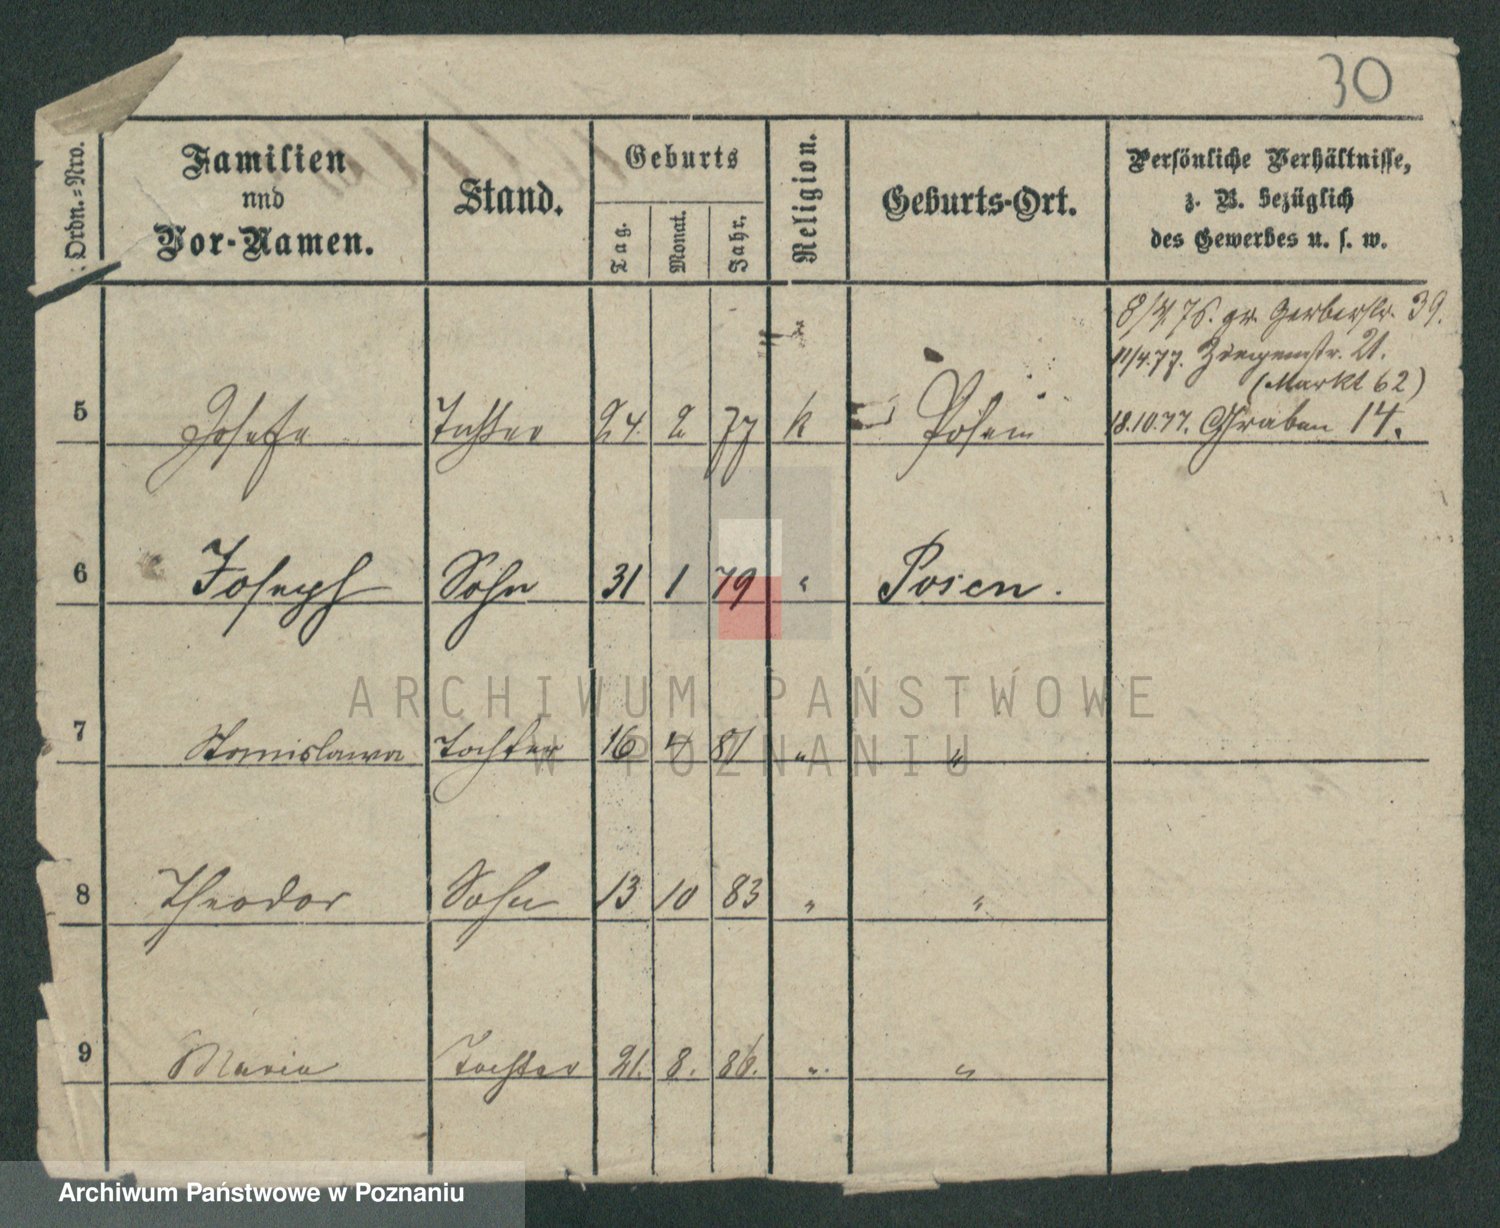 30
Ordn.-Nro.
Familien
nnd
Vor-Namen.
Stand.
Geburts
Tag.
Monat.
Jahr.
Religion.
Geburts-Ort.
Persönliche Verhältnisse,
z. B. bezüglich
des Gewerbes u. s. w.
8/4 76. gr. Gerberstr. 39.
11/4.77. Ziegenstr. 21.
(Markt 62)
18.10.77. Graben 14.
5 Josefa Tochter 24 2 77 k Posen
6 Joseph Sohn 31 1 79 " Posen.
ARCHIWUM PAŃSTWOWE
W POZNANIU
7 Stanislawa Tochter 16 4 81 " "
8 Theodor Sohn 13 10 83 " "
9 Maria Tochter 21. 8. 86. " "
Archiwum Państwowe w Poznaniu